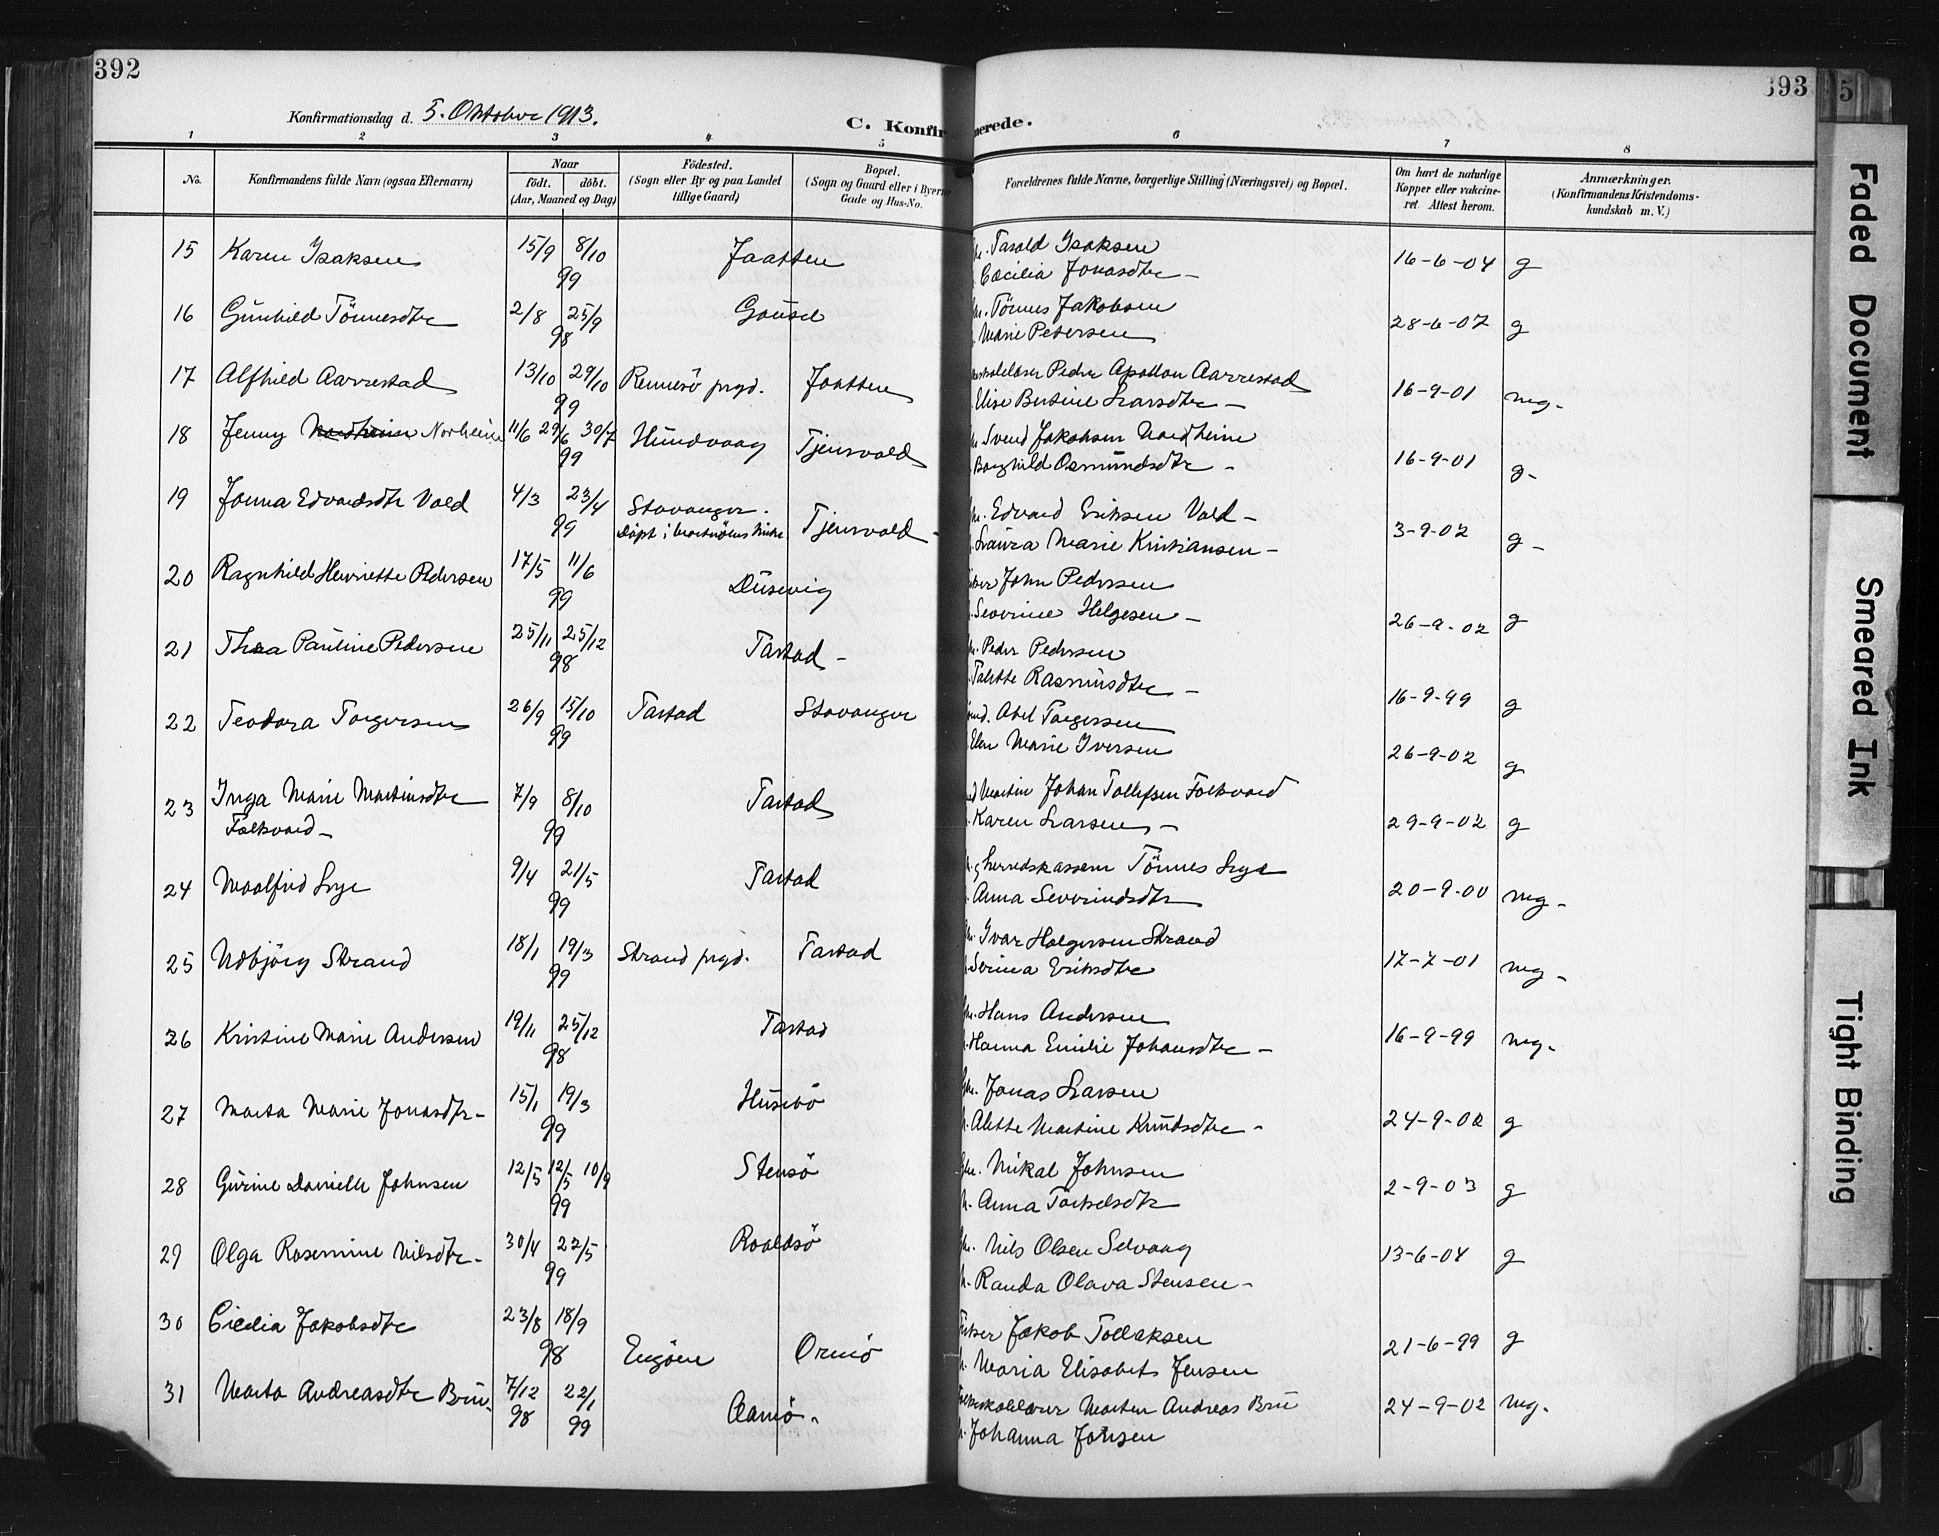 392
393
5
Konfirmationsdag d. 5. Oktober 1913.
C. Konfirmerede.
1 2 3 4 5 6 7 8
No.
Konfirmandens fulde Navn (ogsaa Efternavn)
Naar
födt. döbt.
(Aar, Maaned og Dag)
Födested.
(Sogn eller By og paa Landet
tillige Gaard)
Bopæl.
(Sogn og Gaard eller i Byerne
Gade og Hus-No.
Forældrenes fulde Navne, borgerlige Stilling (Næringsvei) og Bopæl.
Om havt de naturlige
Kopper eller vakcine-
ret. Attest herom.
Anmærkninger.
(Konfirmandens Kristendoms-
kundskab m. V.)
15 Karen Isaksen 15/9 8/10 99 Jaatten Tarald Isaksen 16-6-04 g
Cæcilia Jonasdtr –
16 Gunhild Tönnesdtr 2/8 25/9 98 Gausel Tönnes Jakobsen 28-6-07 g
Marie Petersen
17 Alfhild Aarrestad 13/10 29/10 99 Rennesö prgd. Jaatten Peder Apollon Aarrestad 16-9-01 mg.
Elise Bertine Larsdtr –
18 Jenny Nordheim Norheim 11/6 29/6 30/7 99 Hundvaag Tjensvold Svend Jakobsen Nordheim 16-9-01 g.
Borghild Osmundsdtr –
19 Jonna Edvardsdtr Vold 4/3 23/4 99 Stavanger. Tjensvold – Edvard Eriksen Vold – 3-9-02 g –
Laura Marie Kristiansen –
20 Ragnhild Henriette Pedersen 17/5 11/6 99 Dusevig John Pedersen 26-9-02 g
Severine Helgesen –
21 Thea Pauline Pedersen 25/11 25/12 98 Tastad – Peder Pedersen 16-9-99 g
Talette Rasmusdtr –
22 Teodora Torgersen 26/9 15/10 99 Tastad Stavanger Abel Torgersen 26-9-02 g
Elen Marie Iversen
23 Inga Marie Martinsdtr 7/9 8/10 99 Tastad Martin Johan Tollefsen Folkvord 29-9-02 g
Folkvord – Karen Larsen –
24 Maalfrid Lye 9/4 21/5 99 Tastad Herredskasserer Tönnes Lye 20-9-00 mg.
Anna Severindsdtr
25 Udbjörg Strand 18/1 19/3 99 Strand prgd. Tastad Ivar Holgersen Strand 17-7-01 mg.
Serina Eriksdtr
26 Kristine Marie Andersen 19/11 25/12 98 Tastad Hans Andersen 16-9-99 mg.
Hanna Emilie Johansdtr –
27 Marta Marie Jonasdtr – 15/1 19/3 99 Husebö Jonas Larsen 24-9-02 g
Alette Martine Knudsdtr –
28 Gurine Danielle Johnsen 12/5 12/5 10/9 99 Stensö Mikal Johnsen 2-9-03 g
Anna Torkelsdtr
29 Olga Rosemine Nilsdtr – 30/4 22/5 99 Roaldsö Nils Olsen Selvaag 13-6-04 g
Randa Olava Stensen –
30 Cicelia Jakobsdtr 23/8 18/9 98 Engöen Ormö Jakob Tollaksen 21-6-99 g
Maria Elisabet Jensen
31 Marta Andreasdtr Bru. 7/12 98 22/1 99 Aamö. Morten Andreas Bru 24-9-02 mg.
Johanna Jonsen
Faded Document
Smeared Ink
Tight Binding